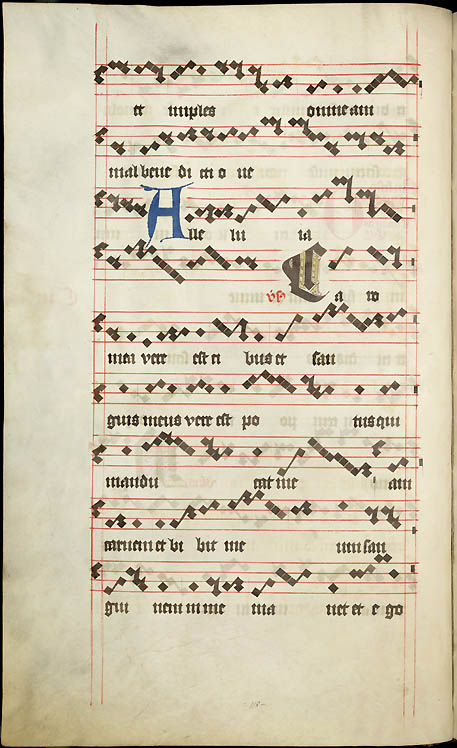 et imples omne am
mal bene di cti o ne
Alle lu ia
v̓s Ca ro
mea vere est ci bus et san
guis meus vere est po tus qui
mandu cat me am
carnem et bi bit me um san
gui nem in me ma net et e go